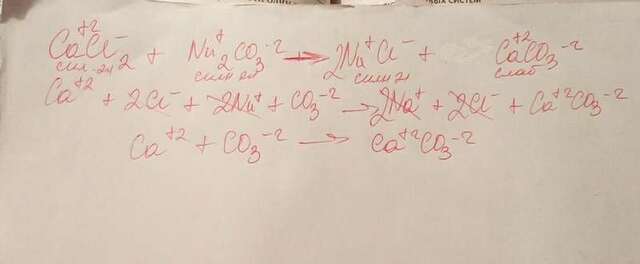 вых систем
Ca⁺²Cl⁻₂ + Na⁺₂CO₃⁻² → 2Na⁺Cl⁻ + Ca⁺²CO₃⁻²
сил. эл сильн эл сильн эл слаб
Ca⁺² + 2Cl⁻ + 2Na⁺ + CO₃⁻² → 2Na⁺ + 2Cl⁻ + Ca⁺²CO₃⁻²
Ca⁺² + CO₃⁻² → Ca⁺²CO₃⁻²